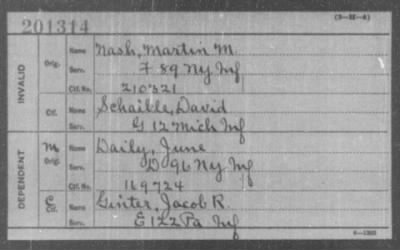 (3—22—4)
201314
INVALID
Orig. Name Nash, Martin M.
Serv. F 89 Ny Inf
Ctf. No. 210321
Ctf. Name Schaible, David
Serv. G 12 Mich Inf
DEPENDENT
M Orig. Name Daily, June
Serv. D 96 Ny Inf
Ctf. No. 169724
C Ctf. Name Ginter, Jacob R.
Serv. E 122 Pa Inf